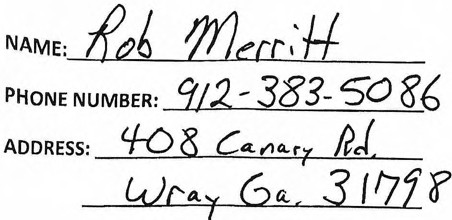 NAME: Rob Merritt
PHONE NUMBER: 912-383-5086
ADDRESS: 408 Canary Rd.
Wray Ga. 31798